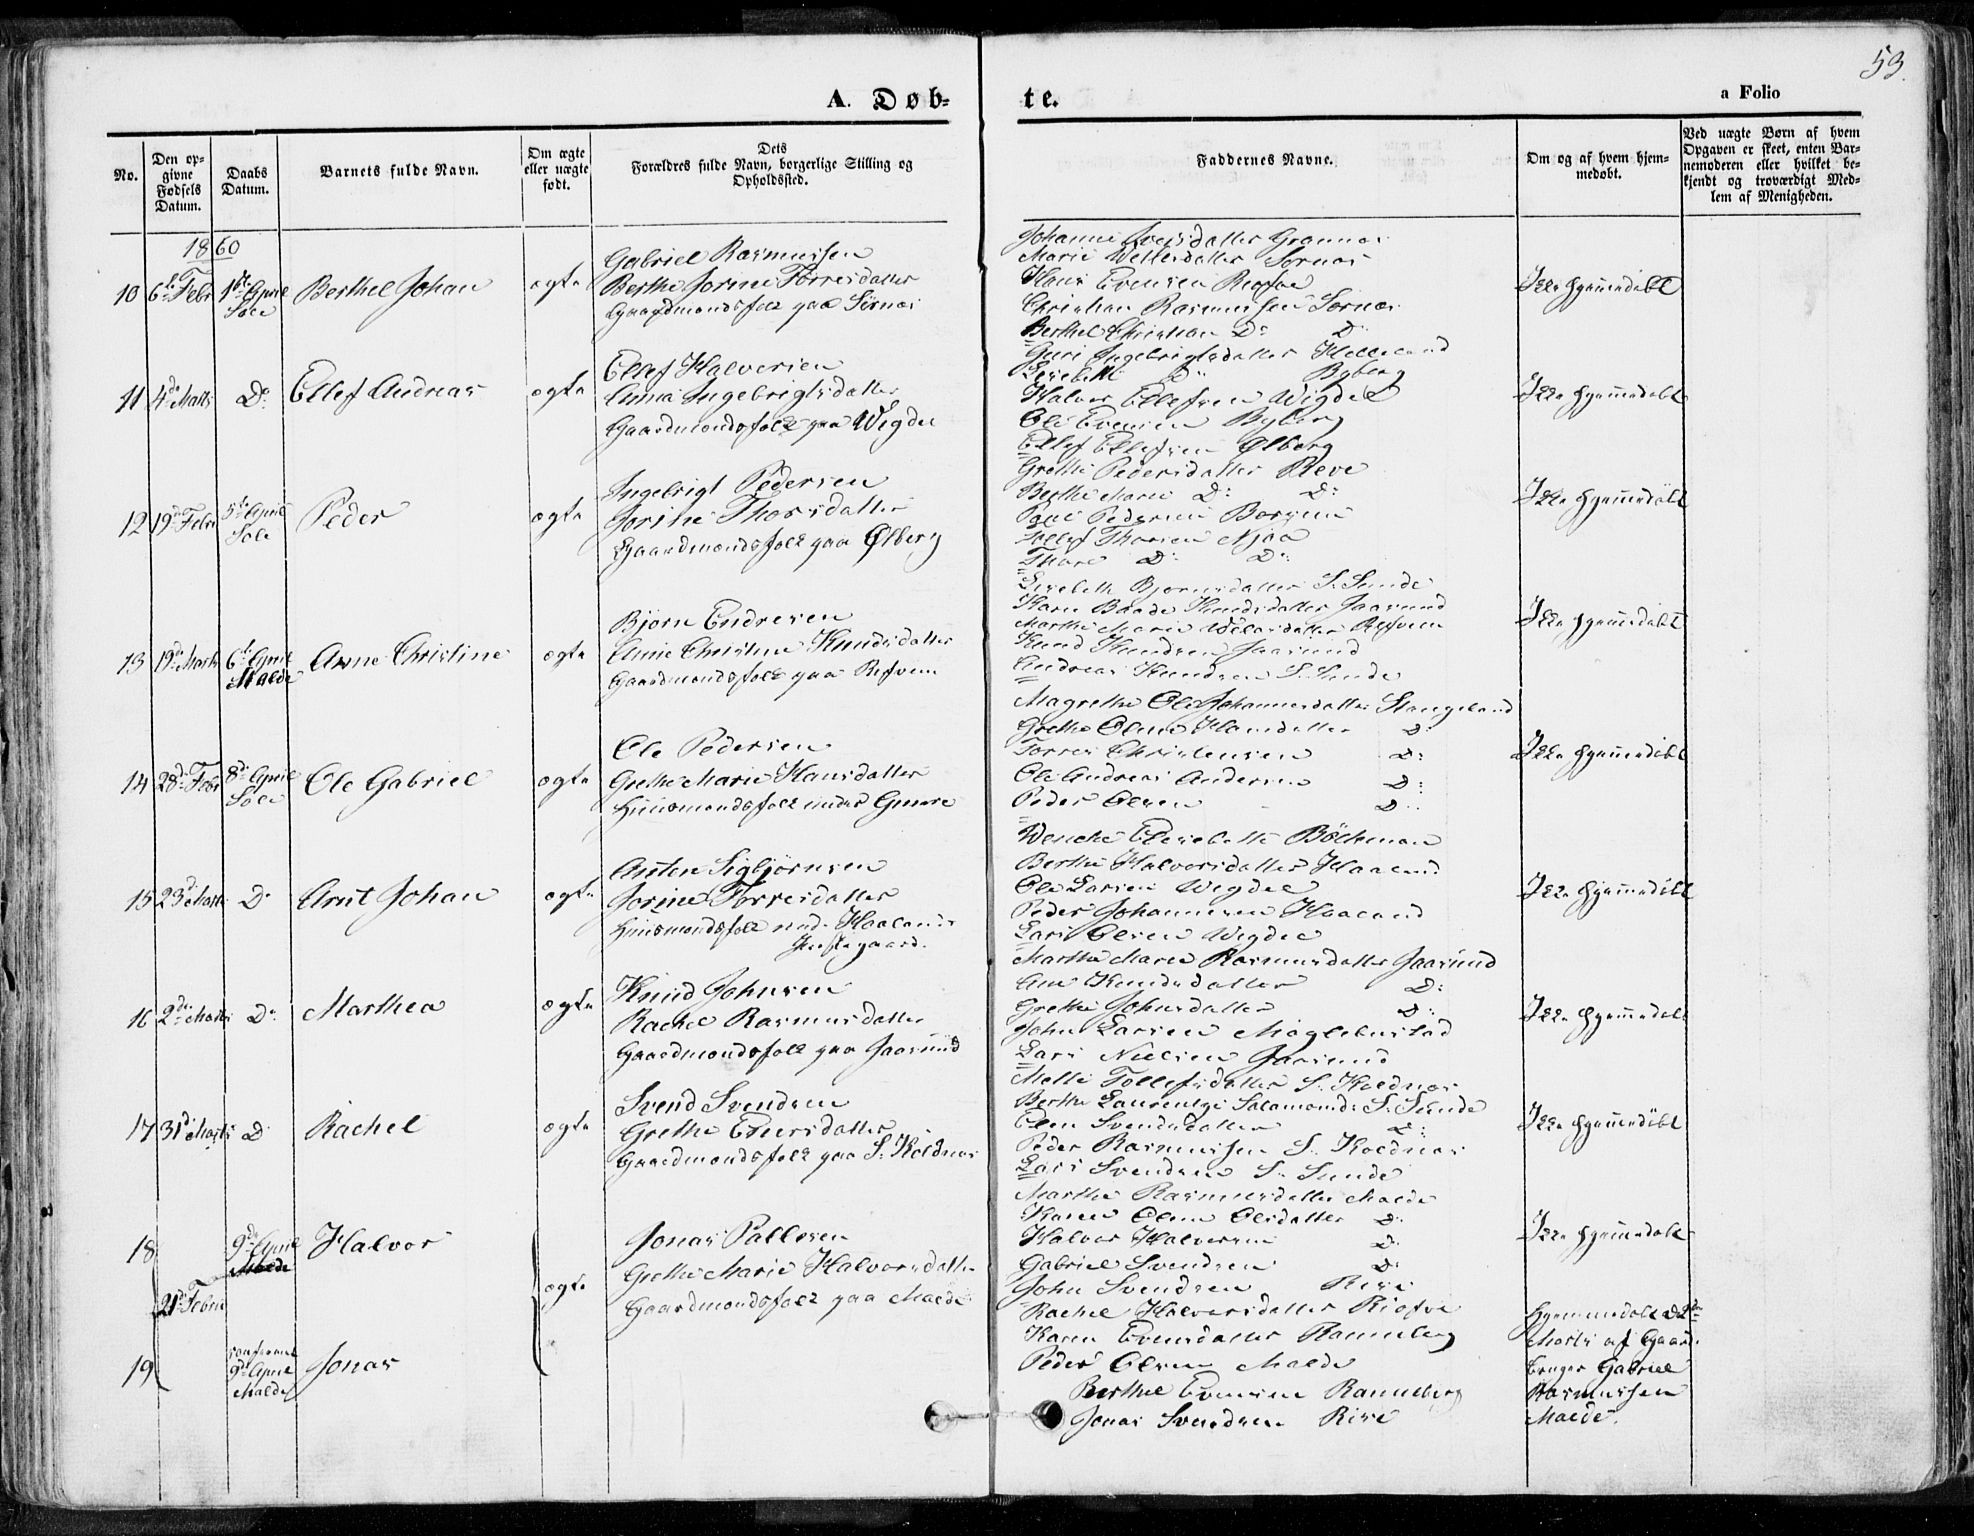 53.
A. Døb-
te.
a Folio
No.
Den op-
givne
Fødsels
Datum.
Daabs
Datum.
Barnets fulde Navn.
Om ægte
eller uægte
født.
Dets
Forældres fulde Navn, borgerlige Stilling og
Opholdssted.
Faddernes Navne.
Om og af hvem hjem-
medøbt.
Ved uægte Børn af hvem
Opgaven er skeet, enten Bar-
nemoderen eller hvilket be-
kjendt og troværdigt Med-
lem af Menigheden.
1860
10 6te Febr 1ste April
Sole
Berthel Johan
ægte
Gabriel Rasmussen
Berthe Jorine Torresdatter
Gaardmandsfolk paa Sørnæs
Johanne Iversdatter Grannæs
Marie Sørnæs
Hans Evensen
Christian Rasmussen Sørnæs
Berthel Christian Do Do
Ikke hjemmedöbt
11 4de Marts Do
Ellef Andreas
ægte
Ellef Halvorsen
Anna Ingebrigtsdatter
Gaardmandsfolk paa Wigdel
Guri Ingebrigtsdatter Helleland
Lisebeth Do Byberg
Halvor Ellefsen Wigdel
Ole Evensen Byberg
Ellef Ellefsen Ølberg
Ikke hjemmedöbt
12 19de Febr 5te April
Sole
Peder
ægte
Ingebrigt Pedersen
Jorine Thorsdatter
Gaardmandsfolk paa Ølberg
Grethe Pedersdatter Reve
Berthe Marie Do Do
Paul Pedersen
Tollef Thorsen Njaa
Thore Do Do
Ikke hjemmedöbt
13 19de Marts 6te April
Malde
Anne Christine
ægte
Bjørn Endresen
Anne Christine Knudsdatter
Gaardmandsfolk paa Refvem
Lisebeth Bjørnsdatter S. Sunde
Karen Knudsdatter Jaasund
Marthe Marie Refvem
Knud Knudsen Jaasund
Andreas Knudsen S. Sunde
Ikke hjemmedöbt
14 28de Febr 8de April
Sole
Ole Gabriel
ægte
Ole Pedersen
Grethe Marie Hansdatter
Huusmandsfolk under Gimre
Magrethe Ole Johannesdatter Stangeland
Grethe Oline Hansdatter Do
Torres Christensen Do
Ole Andreas Andersen Do
Peder Olsen Do
Ikke hjemmedöbt
15 23de Marts Do
Arnt Johan
ægte
Austen Sigbjørnsen
Jorine Torresdatter
Huusmandsfolk und. Haalands
Præstegaard.
Wenche Elisebeth Böckman
Berthe Halvorsdatter Haaland
Ole Larsen Wigdel
Peder Johannesen Haaland
Lars Olsen Wigdel
Ikke hjemmedöbt
16 2den Marts Do
Marthea
ægte
Knud Johnsen
Rachel Rasmusdatter
Gaardmandsfolk paa Jaasund
Marthe Marie Rasmusdatter Jaasund
Ane Knudsdatter Do
Grethe Johnsdatter Do
John Larsen Maglebustad
Lars Nielsen Jaasund
Ikke hjemmedöbt
17 31de Marts Do
Rachel
ægte
Svend Svendsen
Grethe Einersdatter
Gaardmandsfolk paa S. Koldnæs
Mette Tollefsdatter S. Koldnæs
Berthe Laurentze Salamonsd. S. Sunde
Elen Svendsdatter Do
Peder Rasmussen S. Koldnæs
Lars Svendsen S. Sunde
Ikke hjemmedöbt
18 9de April
Malde
Halvor
21de Febr
ægte
Jonas Pallesen
Grethe Marie Halvorsdatter
Gaardmandsfolk paa Malde
Marthe Rasmusdatter Malde
Karen Oline Olsdatter Do
Halvor Halvorsen Do
Gabriel Svendsen Do
John Svendsen Rise
Ikke hjemmedöbt
19 confirmat
9de April
Malde
Jonas
Rachel Halvorsdatter
Karen Evensdatter Ranneberg
Peder Olsen Malde
Berthel Evensen Ranneberg
Jonas Svendsen Rise
Hjemmedöbt
Marts af Gaard-
bruger Gabriel
Rasmussen
Malde.